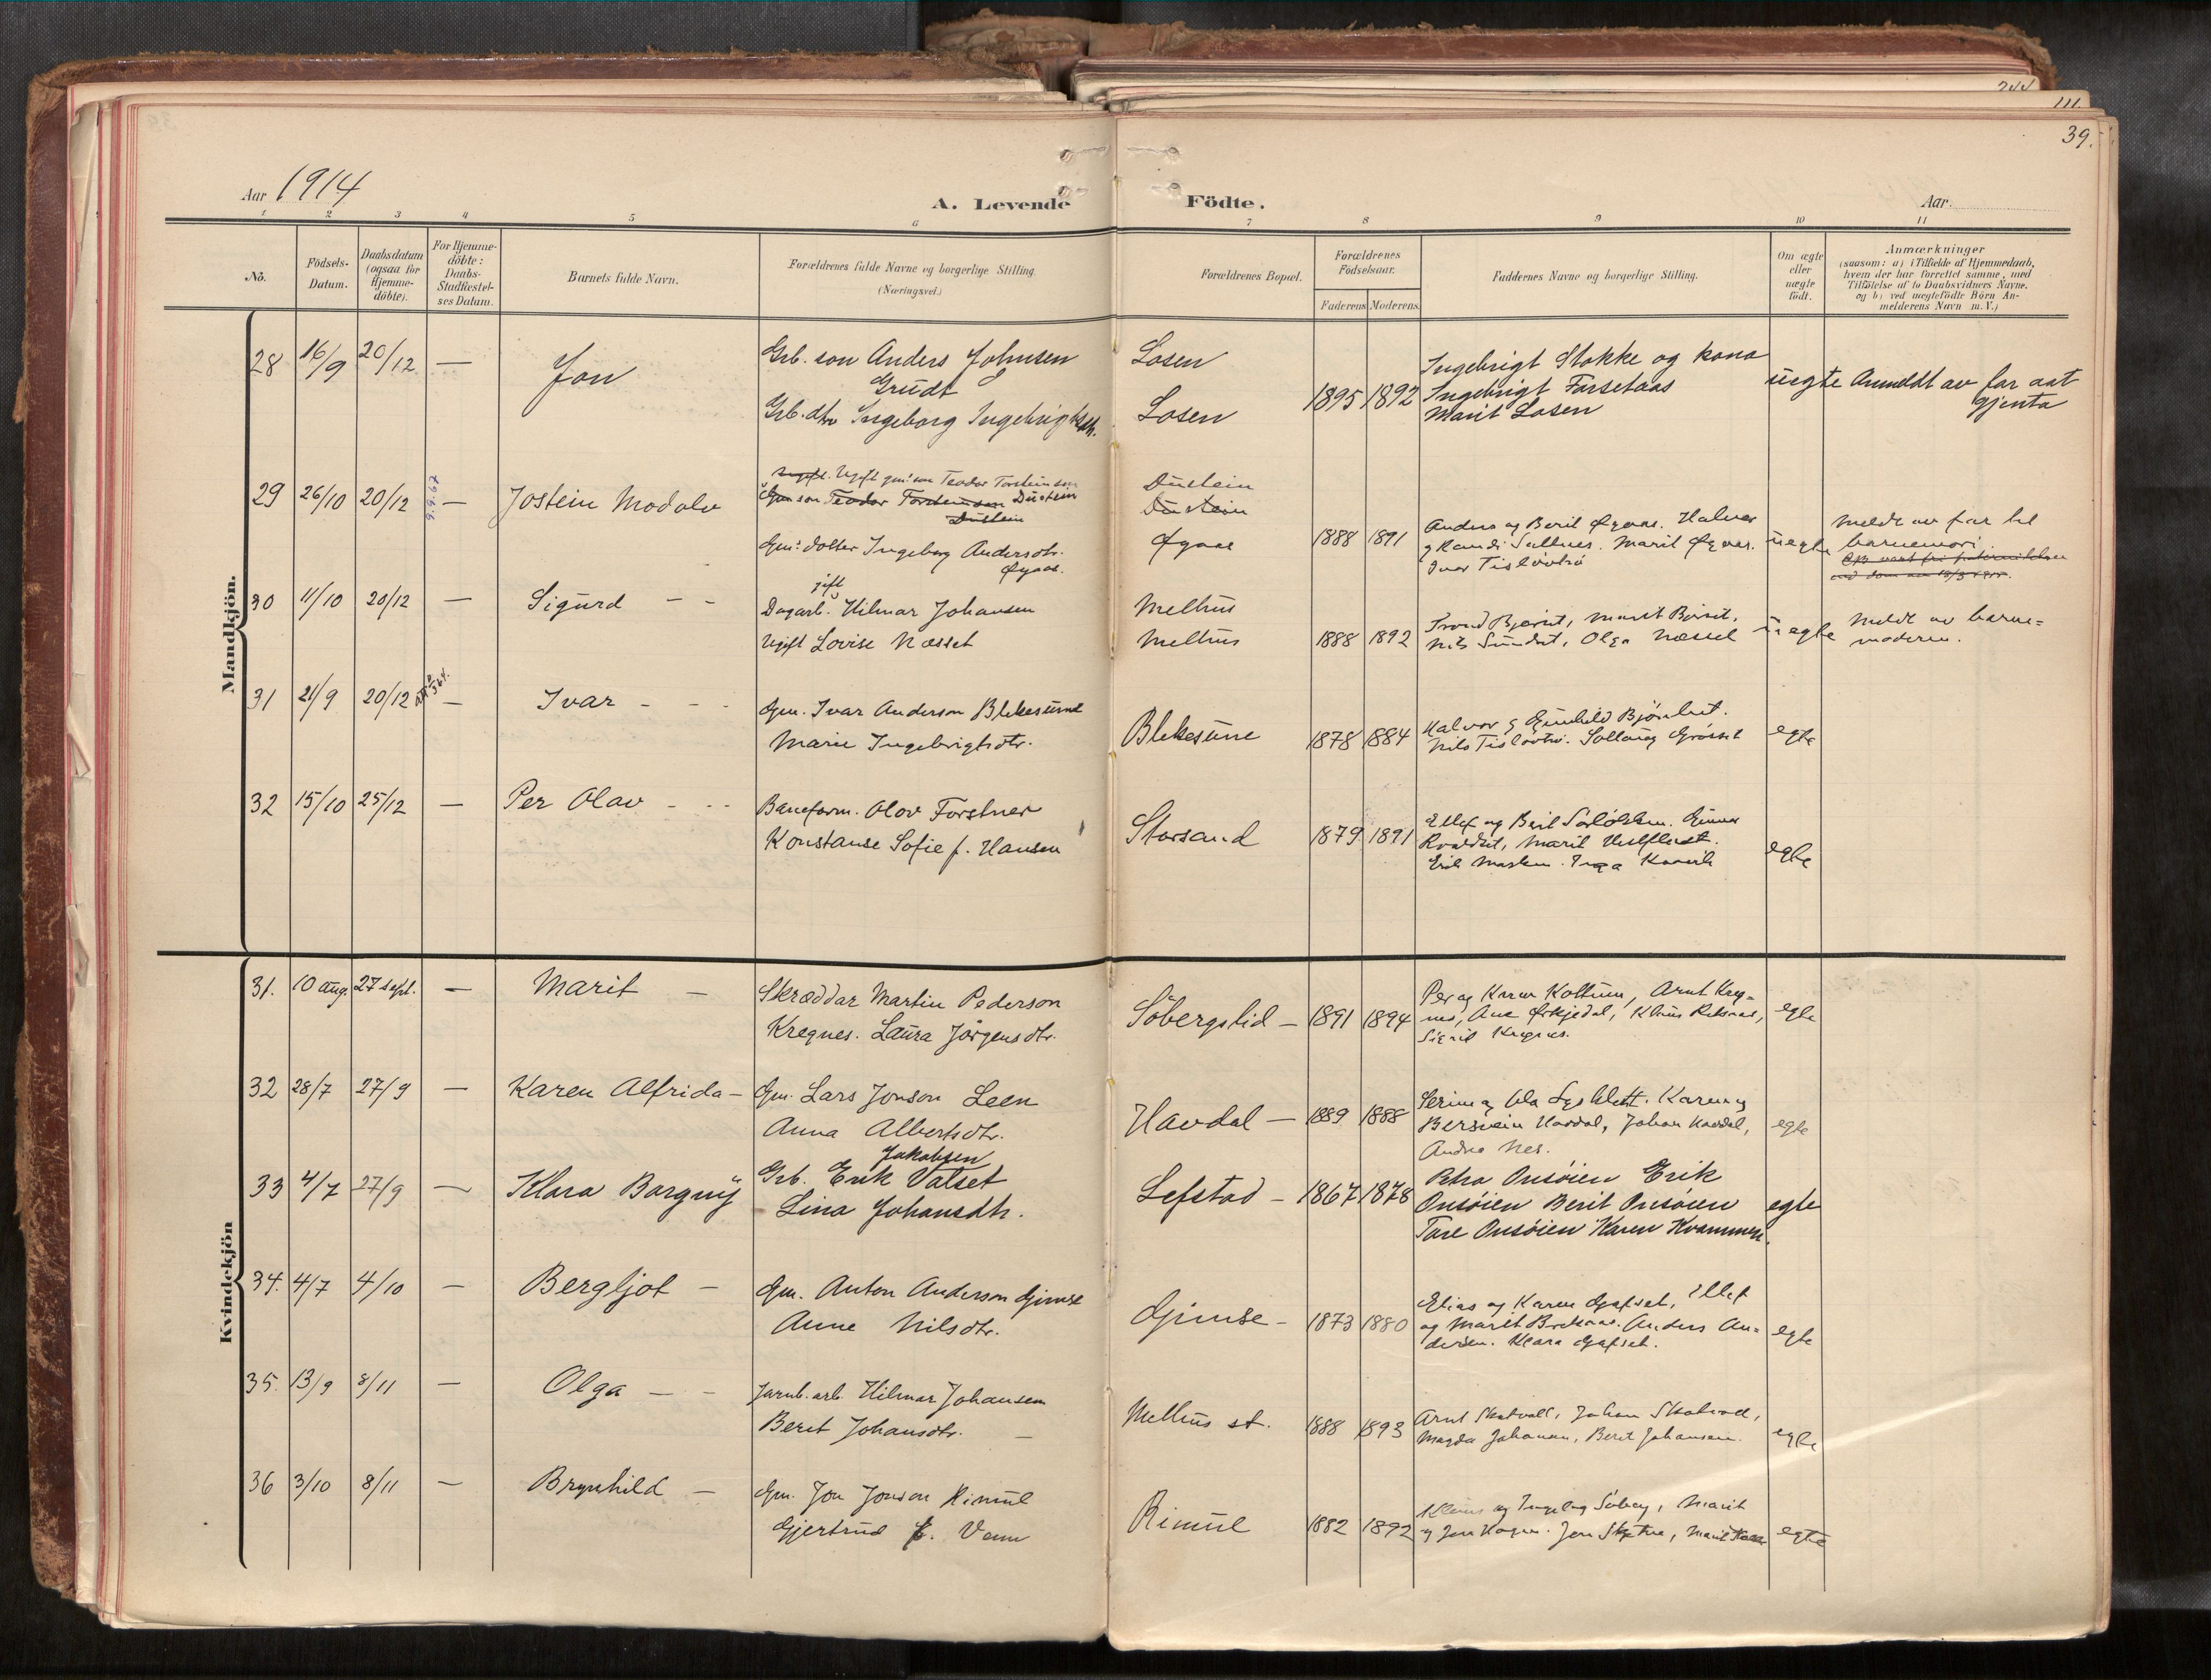 244
111.
39.
Aar 1914
A. Levende Födte.
Aar
1 2 3 4 5 6 7 8 9 10 11
No.
Födsels-
Datum.
Daabsdatum
(ogsaa for
Hjemme-
döbte).
For Hjemme-
döbte:
Daabs-
Stadfæstel-
ses Datum.
Barnets fulde Navn.
Forældrenes fulde Navne og borgerlige Stilling.
(Næringsvei.)
Forældrenes Bopæl.
Forældrenes
Födselsaar.
Faderens Moderens
Faddernes Navne og borgerlige Stilling.
Om ægte
eller
uægte
födt.
Anmærkninger
(saasom: a) i Tilfælde af Hjemmedaab,
hvem der har forrettet samme, med
Tilföielse af to Daabsvidners Navne,
og b) ved uægtefödte Börn An-
melderens Navn m.V.)
Mandkjön.
28 16/9 20/12 — Jon
Grb. son Anders Johnsen
Grudt
Grb. dtr Ingeborg Ingebrigtsdtr.
Losen
Losen
1895 1892
Ingebrigt Stokke og kona
Ingebrigt Forsetaas
Marit Losen
uegte
Anmeldt av far aat
gjenta
29 26/10 20/12 — Jostein Modolv
Ugift gm: son Teodor Torsteinson
Gm son Teodor Torsteinson Dustein
Dustein
Gm: dotter Ingeborg Andersdtr.
Øyaas.
Dustein
Dustein
Øyaas
1888 1891
Anders og Beril Øyaas. Halvor
og Randi Sallnes. Marit Øyaas.
Ivar Tislövtrö
uegte
Meldt av far til
barnemori
30 11/10 20/12 — Sigurd - -
gift
Dagarb. Hilmar Johansen
Ugift Lovise Næsset
Melhus
Melhus
1888 1892
Nils Sundset, Olga Næsset
uegte
Meldt av barne=
moderen.
31 21/9 20/12 — Ivar - - -
Gm. Ivar Anderson Blekesune
Marie Ingebrigtsdtr.
Blekesune
1878 1884
Halvor og Gunhild Bjönset.
Nils Tislövtrö. Solloug Grösset
egte
32 15/10 25/12 — Per Olav - - -
Baneform. Olov Forstner
Konstanse Sofie f. Hansen
Storsand
1879 1891
egte
Kvindekjön
31. 10 aug. 27 sept. — Marit —
Skræddar Martin Pederson
Kregnes. Laura Jörgensdtr.
Söbergslid —
1891 1894
Per og Karen Kottum, Arnt Kreg=
nes, Ane Örkjedal, Klaus Reksnes,
Sigrid Kregnes.
egte
32 28/7 27/9 — Karen Alfrida —
Gm. Lars Jonson Leen
Anna Albertsdtr.
Havdal —
1889 1888
Serine og Ola Lysklett. Karen og
Bersvein Havdal, Johan Havdal,
Andrea Nes.
egte
33 4/7 27/9 — Klara Borgny
Jakobsen
Grb. Erik Valset
Lina Johansdtr.
Lefstad —
1867 1878
Petra Onsöien Erik
Onsöien Berit Onsöien
Tore Onsöien Karen Kvammen.
egte
34. 4/7 4/10 — Bergljot —
Gm. Anton Anderson Gimse
Anne Nilsdtr.
Gimse —
1873 1880
Elias og Karen Gafset, Ellef
og Marit Brekaas. Anders An=
dersen. Klara Gafset.
egte
35. 13/9 8/11 — Olga — —
Jarnb. arb. Hilmar Johansen
Berit Johansdtr. —
Melhus st.
1888 1893
Arnt Skatvoll, Johan Skatvol,
Magda Johansen, Berit Johansen.
egte
36 3/10 8/11 — Brynhild —
Gm. Jon Jonson Rimul
Gjertrud f. Venn
Rimul
1882 1892
egte